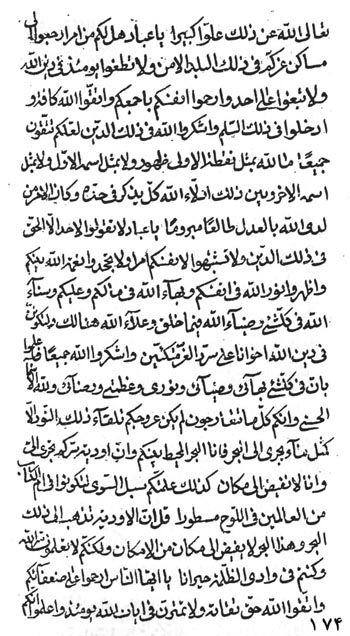 تعالى الله عن ذلك علوا كبيرا يا عباد هل لكم من امر ارجعوا الى
مساكن عزكم في ذلك البلد الامن ولا تطغوا يومئذ في دين الله
ولا تبغوا على احد وارحموا انفسكم باجمعكم واتقوا الله كافة و
ادخلوا في ذلك السلم واشكروا الله في ذلك الدين لعلكم تتقون
جميعا مالله بمثل نقطة الاولى ظهور ولا بمثل اسمه الاول ولا بمثل
اسمه الاخر وبين ذلك ادلاء الله كل يذكر في حده وكان الامر من
لدى الله بالعدل طالعا مبروما يا عباد لا تقولوا الا حد الا الحق
في ذلك الدين ولا تشتبهوا لانفسكم امرا ولا تجحدوا نعمة الله بينكم
واظهروا نور الله في انفسكم وبهاء الله في مالكم وعليكم وسناء
الله في كلشئ وضياء الله فيما خلق وعلاء الله هنالك ولتكونن
في دين الله اخوانا على سرر العز متكئين واشكروا الله جميعا قل
بان في كلشئ بهائى وضيائى ونورى وعظمتى وسنائى ولله الاسماء
الحسنى وانكم كل ما تتعارجون لم يكن عروجكم تلقاء ذلك النور الا
كمثل ماء يجرى الى البحر فانا البحر المحيط بينكم وان اودية تركم يجرى الى
وانا لانفيض الى مكان كذلك علمتكم سبل التقوى لتكونوا في ام الكتاب
من العالمين في اللوح مسطورا قل ان الاودية تذهب الى ذلك
البحر وهذا البحر لا يفيض الى مكان من الامكان ولكنكم لا تعلمون الله
وكنتم في وادى الظلمة حيرانا يا ايها الناس ارحموا على ضعفائكم
واتقوا الله حق تقاته ولا تمترون في ايات الله يومئذ واعلموا انكم
١٧۴